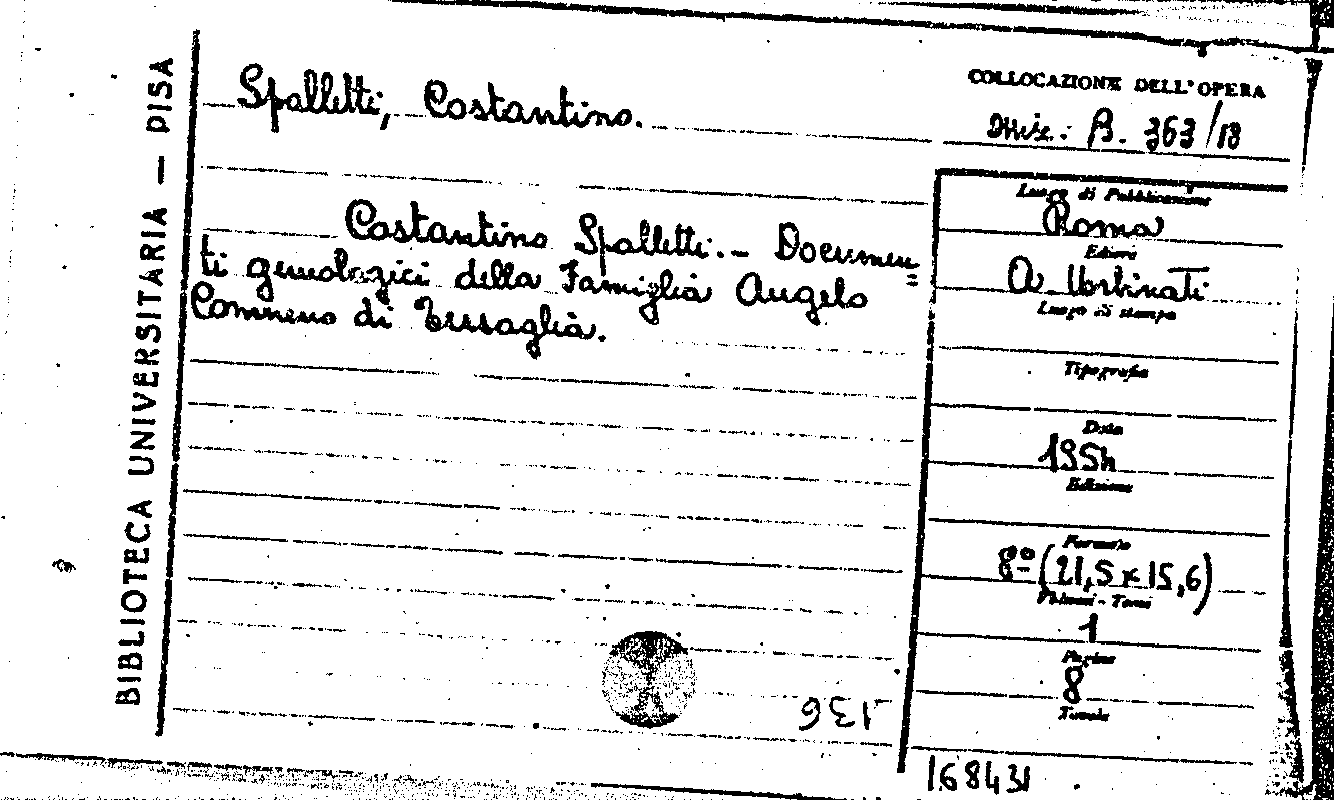 BIBLIOTECA UNIVERSITARIA — PISA
Spalletti, Costantino.
Costantino Spalletti. - Documen=
ti genealogici della Famiglia Angelo
Comneno di Tessaglia.
136
COLLOCAZIONE DELL'OPERA
Misc.: B. 363/18
Luogo di Pubblicazione
Roma
Editore
A. Urbinati
Luogo di stampa
Tipografia
Data
1954
Edizione
Formato
8º (21,5 x 15,6)
Volumi - Tomi
1
Pagine
8
Tavole
168431